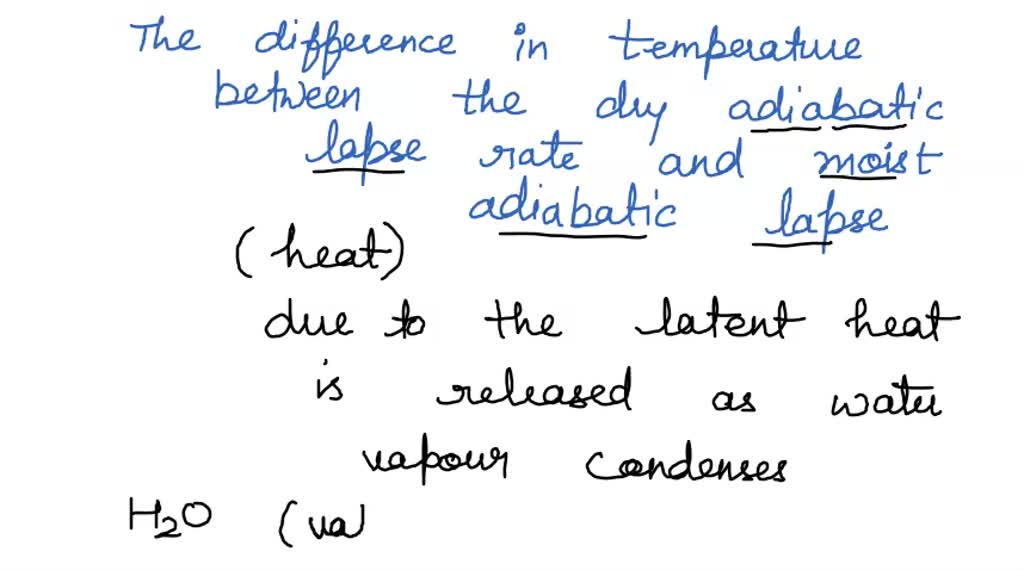 The difference in temperature
between the dry adiabatic
lapse rate and moist
adiabatic lapse
(heat)
due to the latent heat
is released as water
vapour condenses
H2O (va)